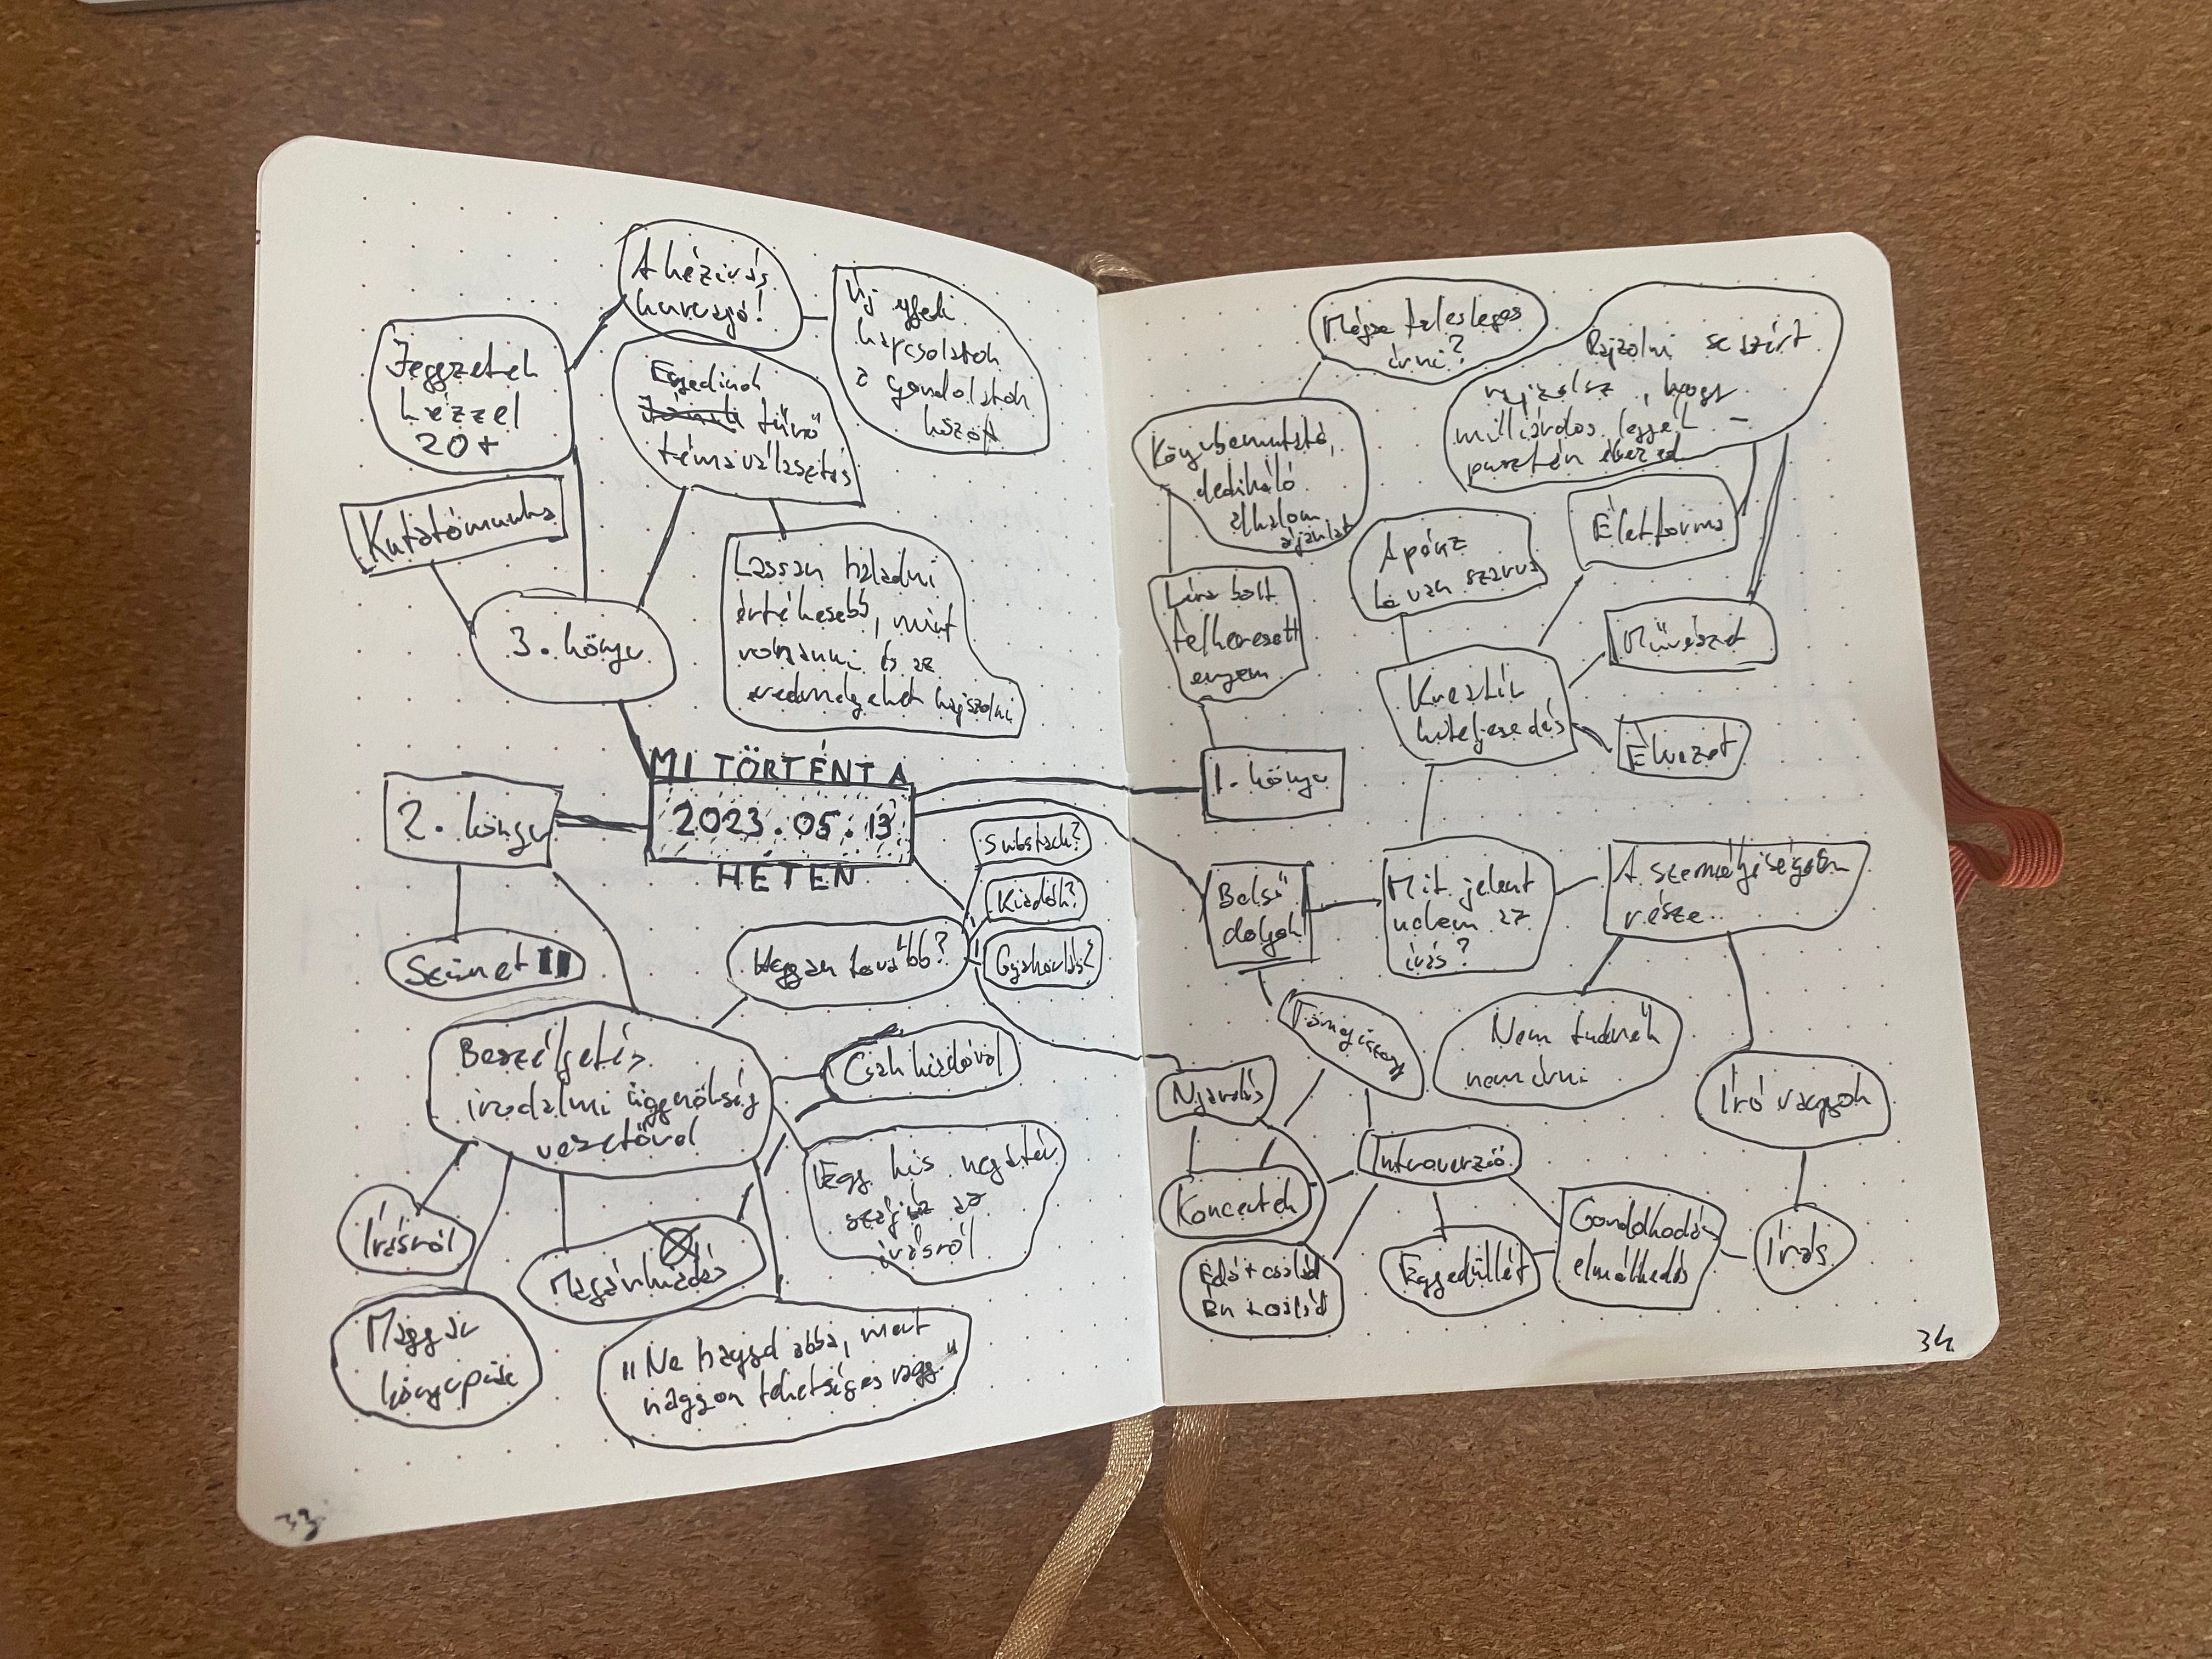 A kézírás
Új egyedi
kapcsolatok
a gondolatok
között
Jegyzetek
kézzel
20+
Egyedinek
tűnő
témaválasztás
Kutatómunka
Lassan haladni
értékesebb, mint
rohanni és az
eredményeket hajszolni
3. könyv
MI TÖRTÉNT A
2023.05.13
HETÉN
2. könyv
Szünet
Substack?
Kiadók?
Gyakorlás?
Hogyan tovább?
Beszélgetés
irodalmi ügynökség
vezetővel
Csak kiadóval
Egy kis negatív
az
írásról
Írásról
Magánkiadás
Magyar
könyvpiac
"Ne hagyd abba, mert
nagyon tehetséges vagy."
33
Mégse felesleges
írni?
Rajzolni se azért
rajzolsz, hogy
milliárdos legyél –
pusztán élvezed
Könyvbemutató,
dedikáló
alkalom
ajánlat
Líra bolt
felkeresett
engem
A pénz
le van szarva
Életforma
Művészet
Kreatív
kiteljesedés
Élvezet
1. könyv
Belső
dolgok
Mit jelent
nekem az
írás?
A személyiségem
része
Nem tudnék
nem írni
Író vagyok
Nyaralás
Introverzió
Koncertek
Egyedüllét
Gondolkodás
elmélkedés
Írás
család
Én + család
34